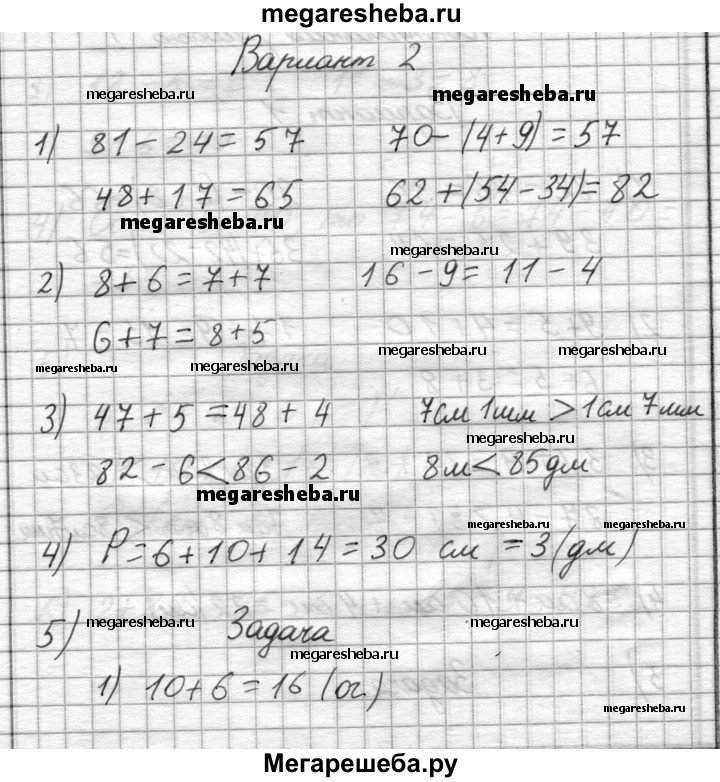 megaresheba.ru
Вариант 2
megaresheba.ru megaresheba.ru
1) 81 - 24 = 57 70 - (4 + 9) = 57
48 + 17 = 65 62 + (54 - 34) = 82
megaresheba.ru
megaresheba.ru
2) 8 + 6 = 7 + 7 16 - 9 = 11 - 4
6 + 7 = 8 + 5
megaresheba.ru megaresheba.ru megaresheba.ru megaresheba.ru
3) 47 + 5 = 48 + 4 7см 1мм > 1см 7мм
megaresheba.ru
82 - 6 < 86 - 2 8м < 85дм
megaresheba.ru
megaresheba.ru megaresheba.ru
4) P = 6 + 10 + 14 = 30 см = 3 (дм)
megaresheba.ru megaresheba.ru
5) Задача
megaresheba.ru
1) 10 + 6 = 16 (ог.)
megaresheba.ru
Мегарешеба.ру